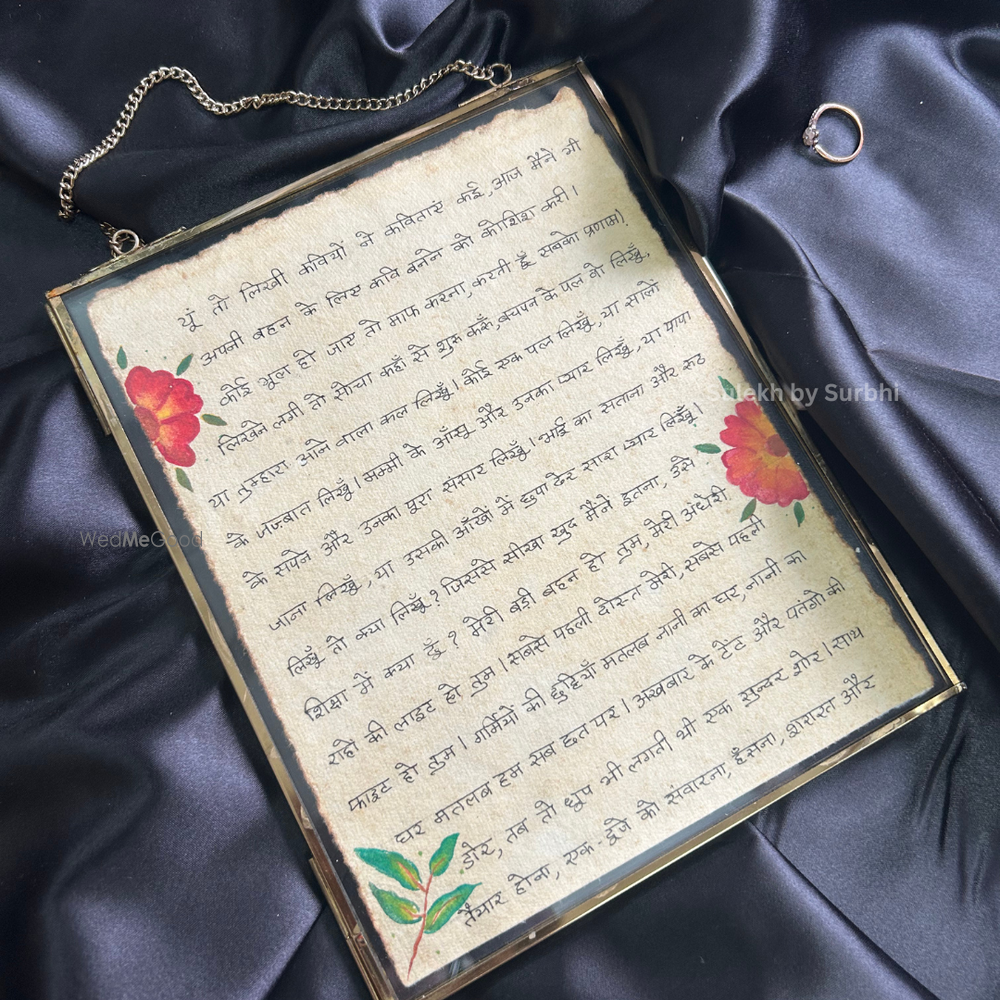 यूं तो लिखी कवियों ने कविताएं कई, आज मैंने भी
अपनी बहन के लिए कवि बनने की कोशिश करी।
कोई भूल हो जाए तो माफ करना, करती हूँ सबको प्रणाम)
लिखने लगी तो सोचा कहाँ से शुरू करूँ, बचपन के पल वो लिखूँ,
या तुम्हारा आने वाला कल लिखूँ। कोई एक पल लिखूँ, या सालों
के जज़्बात लिखूँ। मम्मी के आँसू और उनका प्यार लिखूँ, या पापा
के सपने और उनका पूरा संसार लिखूँ। भाई का सताना और रूठ
जाना लिखूँ, या उसकी आँखों में छुपा ढेर सारा प्यार लिखूँ।
लिखूँ तो क्या लिखूँ? जिससे सीखा खुद मैंने इतना, उसे
शिक्षा में क्या दूँ? मेरी बड़ी बहन हो तुम, मेरी अंधेरी
राहों की लाइट हो तुम। सबसे पहली दोस्त मेरी, सबसे पहली
फाइट हो तुम। गर्मियों की छुट्टियाँ मतलब नानी का घर, नानी का
घर मतलब हम सब छत पर। अखबार के टेंट और पतंगो की
डोर, तब तो धूप भी लगती थी एक सुन्दर शोर। साथ
तैयार होना, एक-दूजे को संवारना, हँसना, शरारत और
Sulekh by Surbhi
WedMeGood